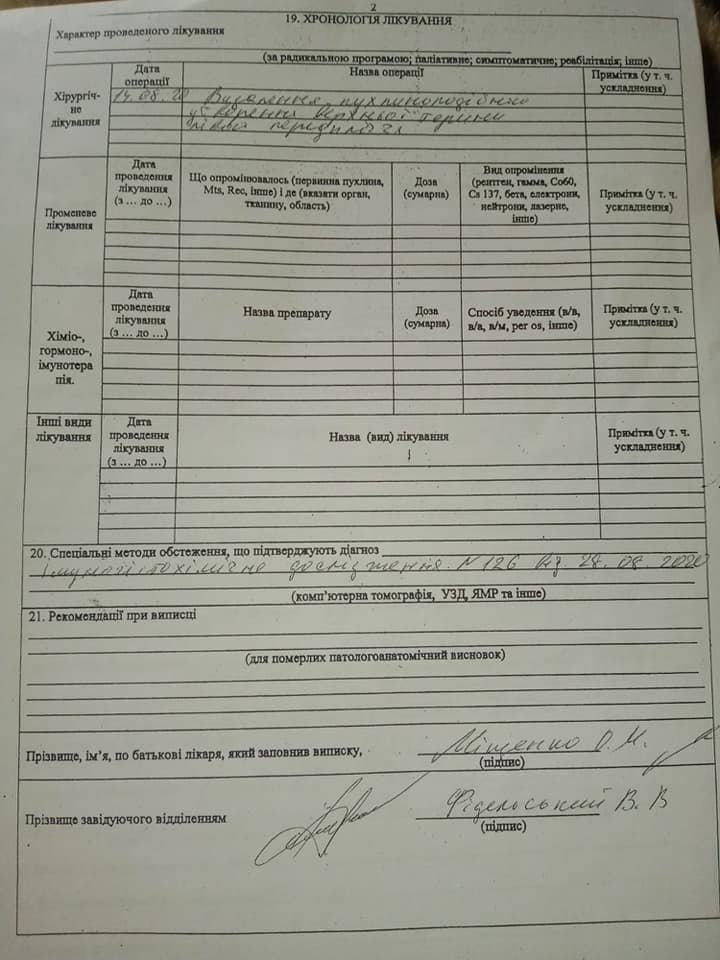 2
19. ХРОНОЛОГІЯ ЛІКУВАННЯ
Характер проведеного лікування
(за радикальною програмою; паліативне; симптоматичне; реабілітація; інше)
Хірургіч-
не
лікування
Дата
операції
Назва операції
Примітка (у т. ч.
ускладнення)
14.08.20 Видалення пухлиноподібного
утворення верхньої третини
лівого передпліччя
Променеве
лікування
Дата
проведення
лікування
(з ... до ...)
Що опромінювалось (первинна пухлина,
Mts, Rec, інше) і де (вказати орган,
тканину, область)
Доза
(сумарна)
Вид опромінення
(рентген, гамма, Co60,
Cs 137, бета, електрони,
нейтрони, лазерне,
інше)
Примітка (у т. ч.
ускладнення)
Хіміо-,
гормоно-,
імунотера
пія.
Дата
проведення
лікування
(з ... до ...)
Назва препарату
Доза
(сумарна)
Спосіб уведення (в/в,
в/а, в/м, per os, інше)
Примітка (у т. ч.
ускладнення)
Інші види
лікування
Дата
проведення
лікування
(з ... до ...)
Назва (вид) лікування
Примітка (у т. ч.
ускладнення)
20. Спеціальні методи обстеження, що підтверджують діагноз
Імуногістохімічне дослідження N 126 від 28.08.2020
(комп’ютерна томографія, УЗД, ЯМР та інше)
21. Рекомендації при виписці
(для померлих патологоанатомічний висновок)
Прізвище, ім’я, по батькові лікаря, який заповнив виписку, Міщенко О.М.
(підпис)
Прізвище завідуючого відділенням Фідельський В.В
(підпис)